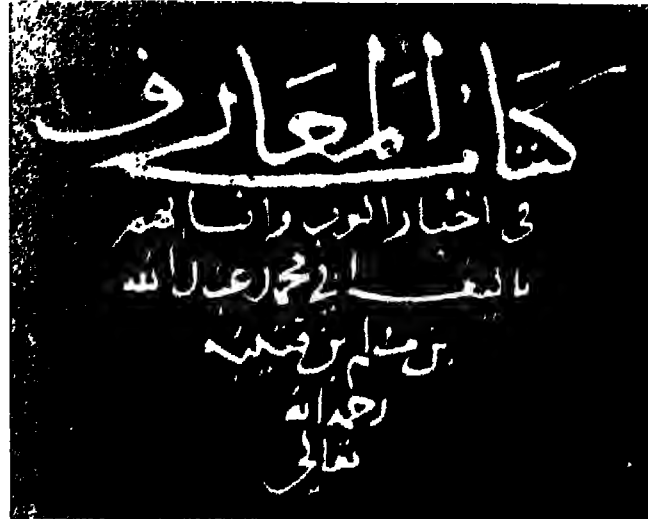 كتاب المعارف
فى اخبار العرب وانسابهم
تاليف ابي محمد عبد الله
بن مسلم بن قتيبه
رحمه الله
تعالى